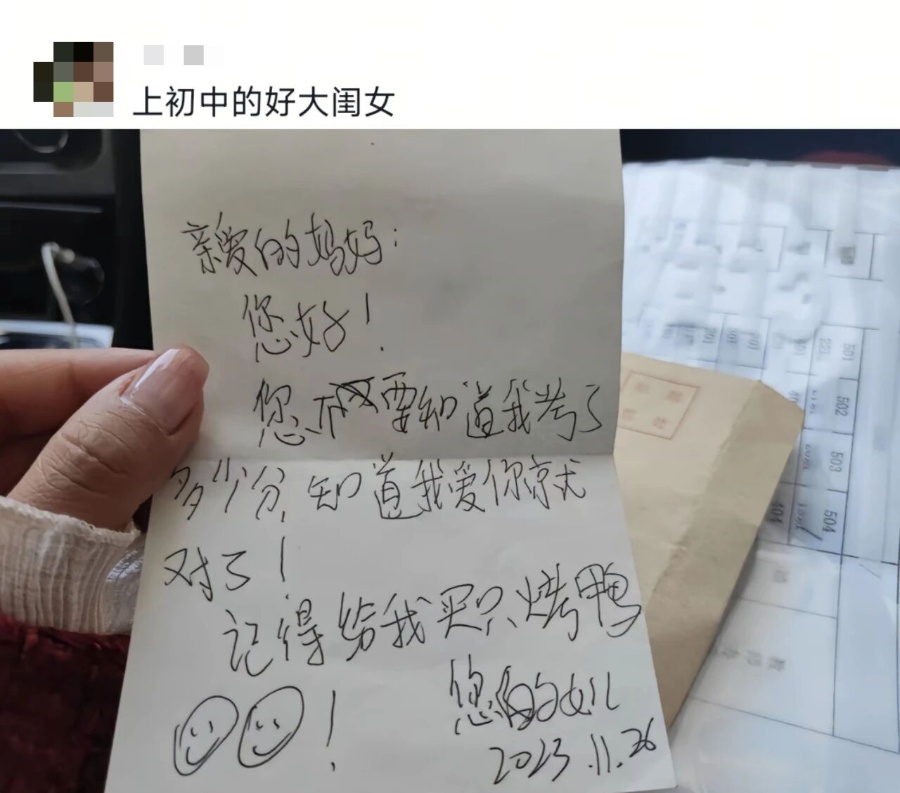 上初中的好大闺女
亲爱的妈妈：
您好！
您不要知道我考了
多少分，知道我爱你就
对了！
记得给我买只烤鸭
！
您的女儿
2023.11.26
501
502
503
504